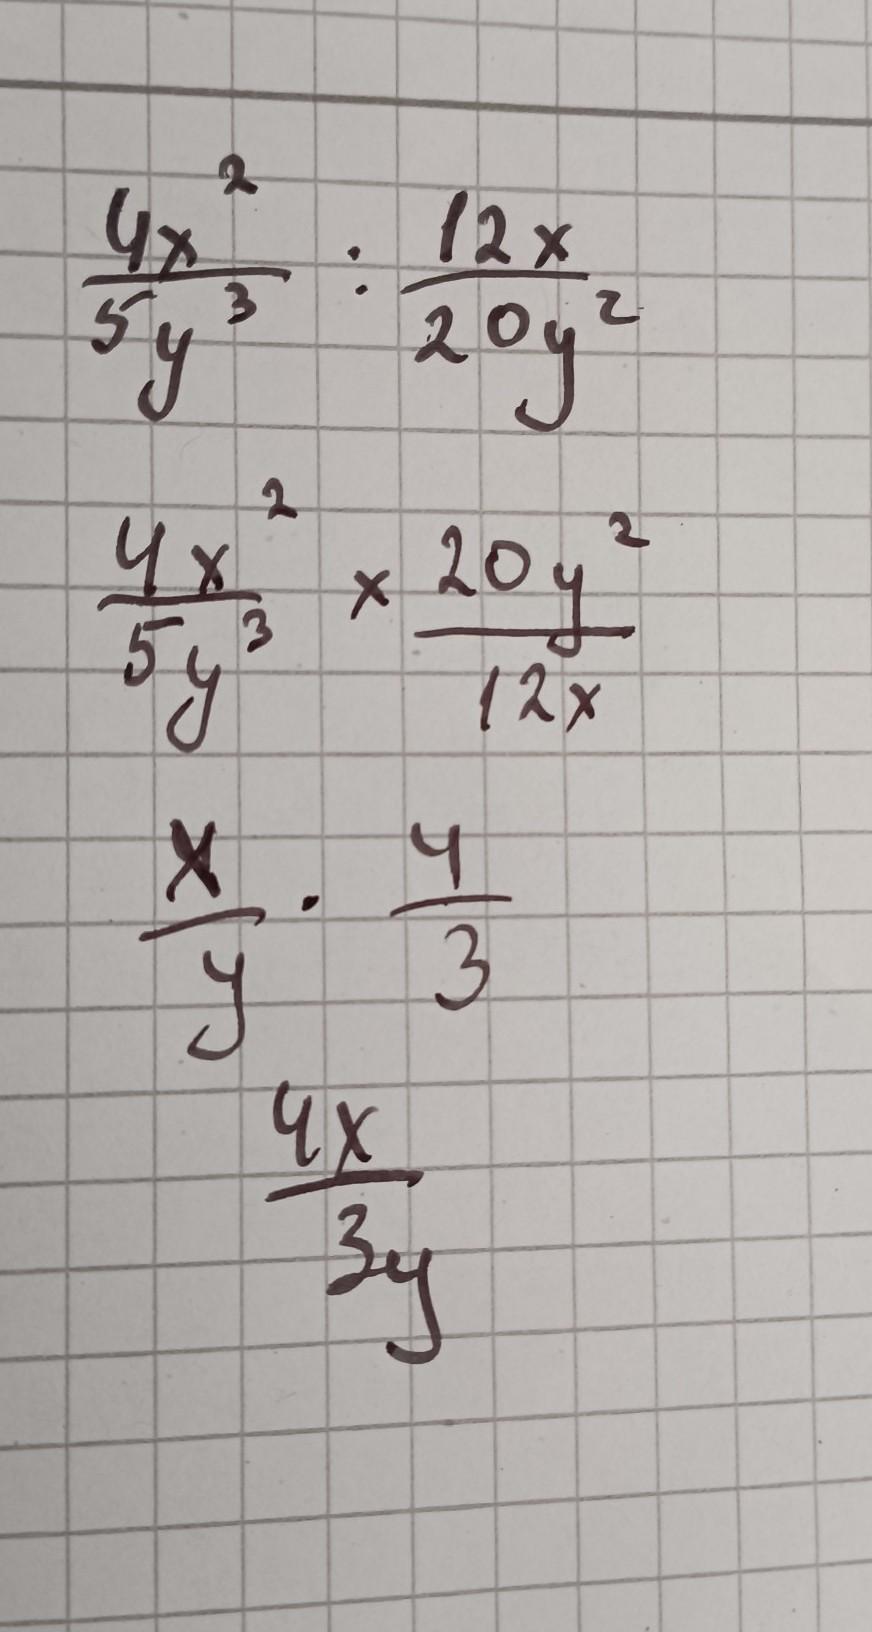 4x² / 5y³ : 12x / 20y²
4x² / 5y³ × 20y² / 12x
x / y · 4 / 3
4x / 3y